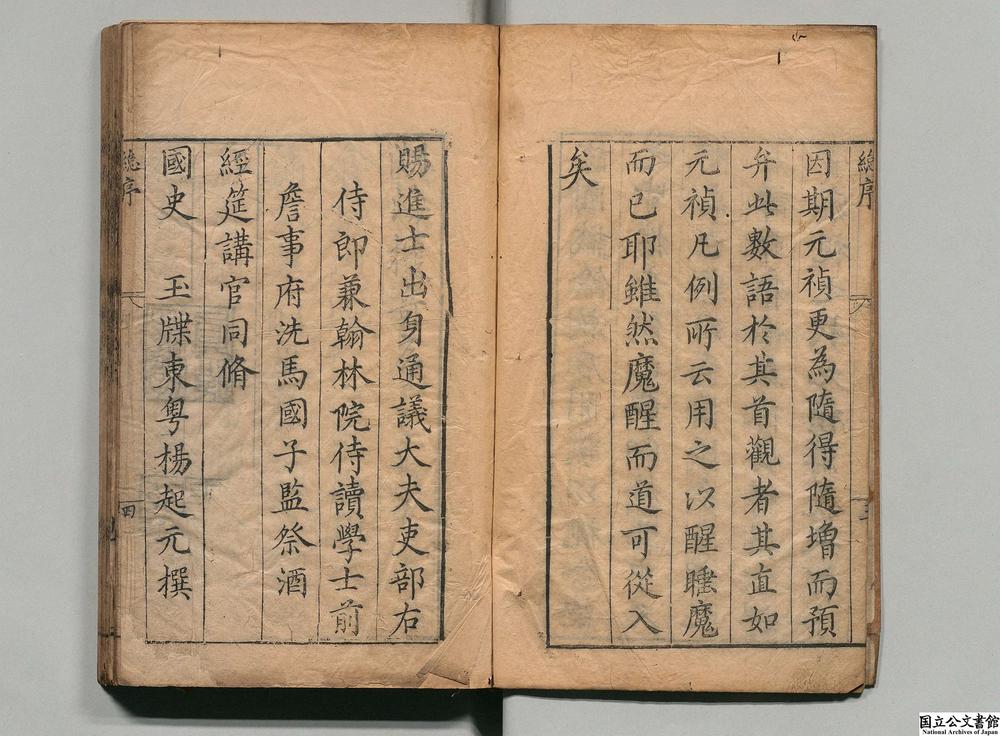 總序
因期元禎更為隨得隨增而預
弁此數語於其首觀者其直如
元禎凡例所云用之以醒睡魔
而已耶雖然魔醒而道可從入
矣
三
賜進士出身通議大夫吏部右
侍郎兼翰林院侍讀學士前
詹事府洗馬國子監祭酒
經筵講官同脩
國史 玉牒東粤楊起元撰
總序
四
国立公文書館
National Archives of Japan